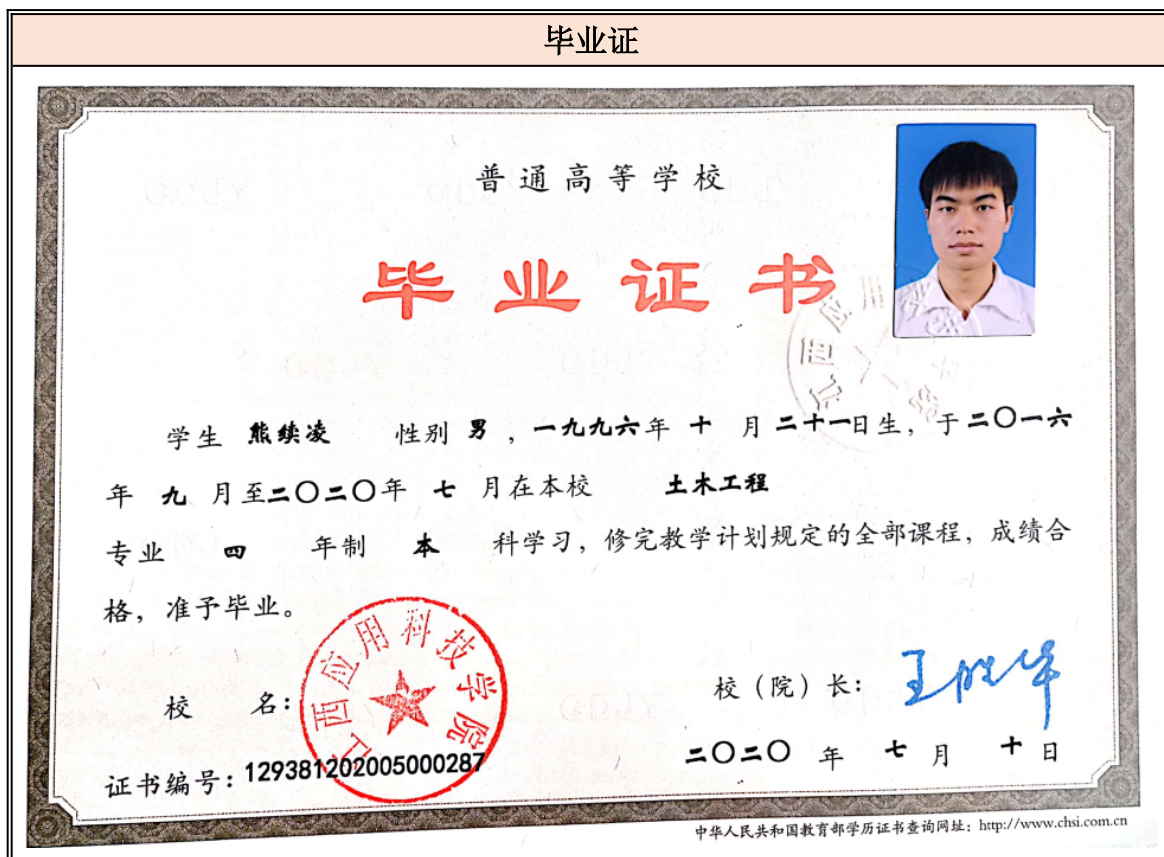 毕业证
普通高等学校
毕业证书
学生 熊续凌 性别 男，一九九六年 十 月 二十一日生，于二〇一六
年 九 月至二〇二〇年 七 月在本校 土木工程
专业 四 年制 本 科学习，修完教学计划规定的全部课程，成绩合
格，准予毕业。
山西应用科技学院
校 名：
校（院）长：
二〇二〇 年 七 月 十 日
证书编号：129381202005000287
中华人民共和国教育部学历证书查询网址：http://www.chsi.com.cn